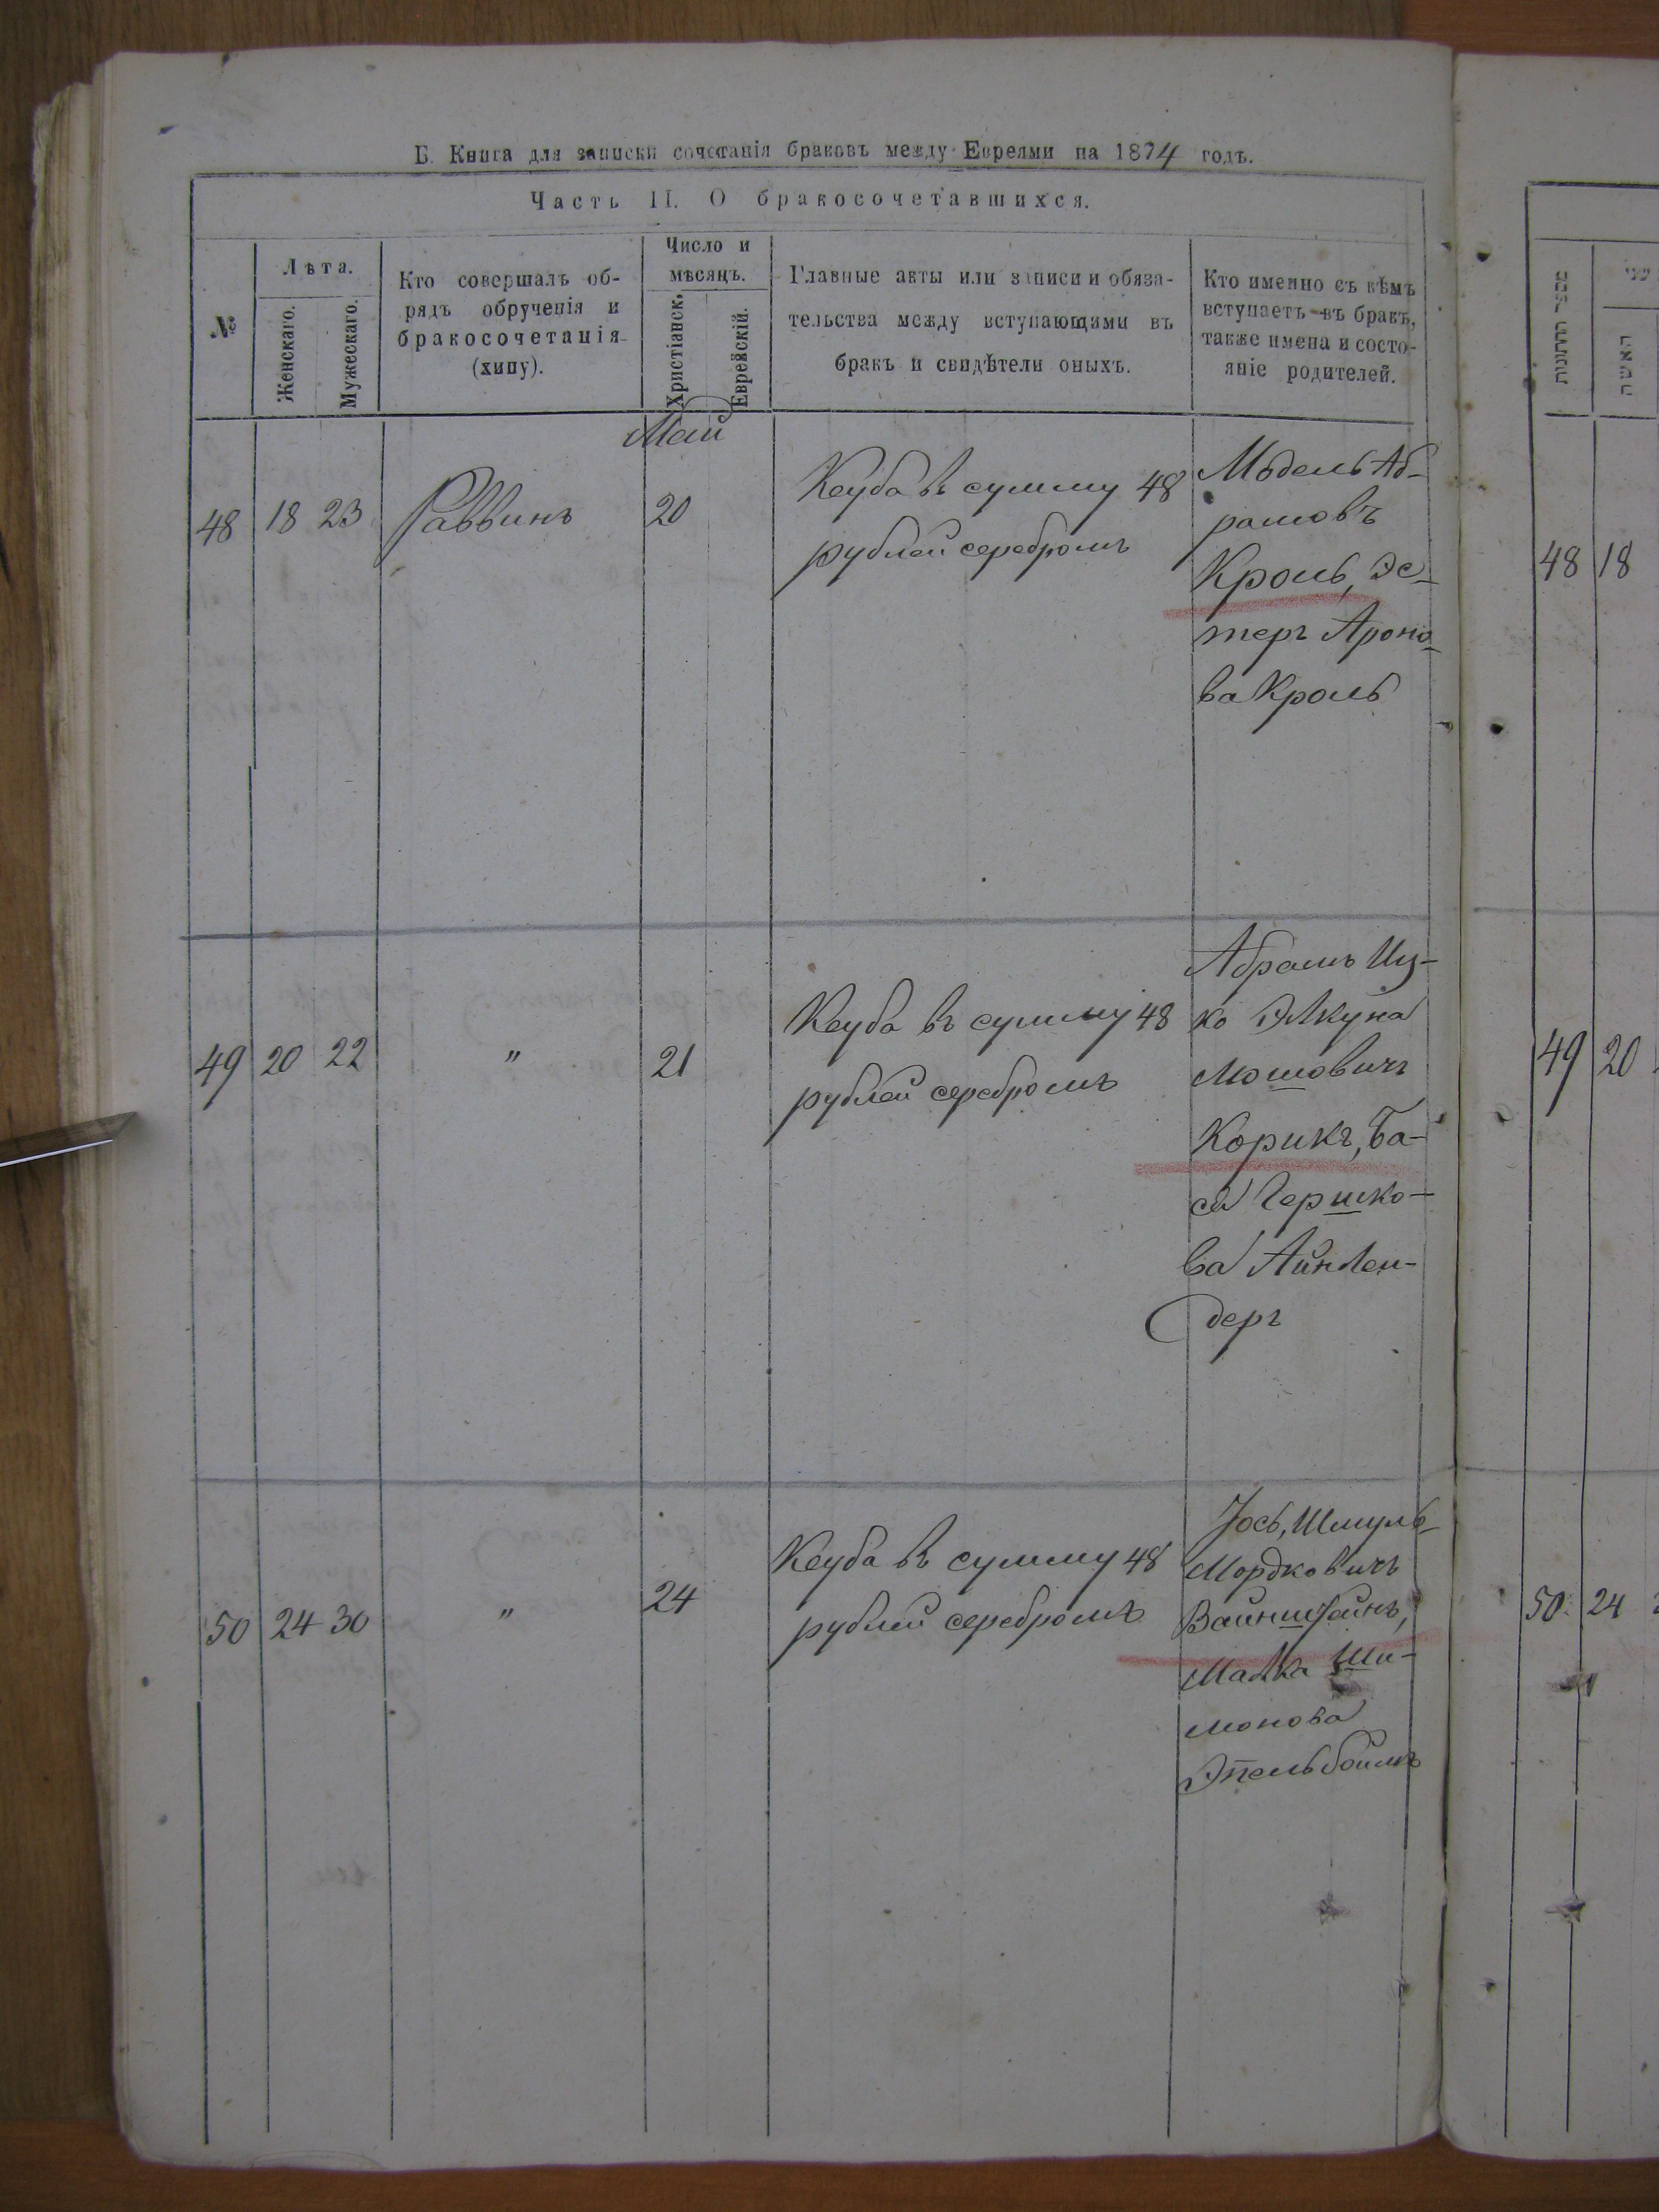 Б. Книга для записки сочетанія браковъ между Евреями на 1874 годъ.
Часть II. О бракосочетавшихся.
№
Лѣта.
Женскаго.
Мужескаго.
Кто совершалъ об-
рядъ обрученія и
бракосочетанія
(хипу).
Число и
мѣсяцъ.
Христіанск.
Еврейскій.
Главные акты или записи и обяза-
тельства между вступающими въ
бракъ и свидѣтели оныхъ.
Кто именно съ кѣмъ
вступаетъ въ бракъ,
также имена и состо-
яніе родителей.
Май
48 18 23 Раввинъ 20
Кеуба въ сумму 48
рублей серебромъ
Аб-
рамовъ
Кроль, Эс-
теръ Ароно-
ва Кроль
49 20 22 " 21
Кеуба въ сумму 48
рублей серебромъ
Абрамъ Иц-
ко Элкуна
Мошовичъ
Корикъ, Ба-
ся Гершко-
ва Айнлен-
деръ
50 24 30 " 24
Кеуба въ сумму 48
рублей серебромъ
Іось, Шмуль
Мордковичъ
Вайнштейнъ,
Малка Ши-
монова
Эпельбоимъ
מספר החתונות
האשה
48 18
49 20
50 24